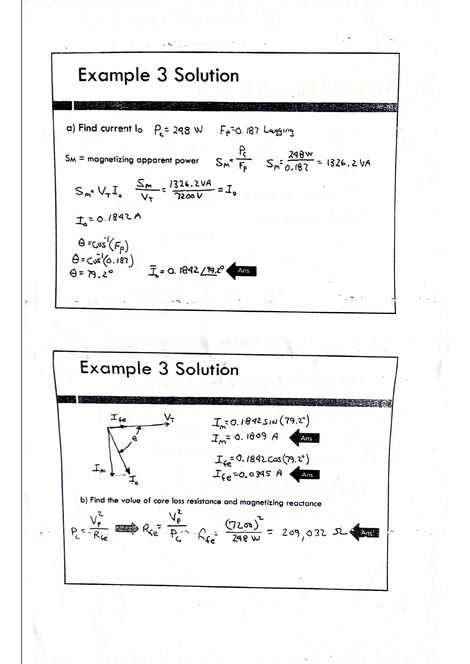 Example 3 Solution
a) Find current Io Pc = 248 W Fp = 0.187 Lagging
SM = magnetizing apparent power Sm = Pc/Fp Sm = 248W/0.187 = 1326.2 VA
Sm = VT Io Sm/VT = 1326.2VA/7200V = Io
Io = 0.1842 A
θ = cos⁻¹(Fp)
θ = cos⁻¹(0.187)
θ = 79.2° Īo = 0.1842 /79.2° Ans
Example 3 Solution
Ife VT Im = 0.1842 SIN(79.2°)
θ Im = 0.1809 A Ans
Ife = 0.1842 cos(79.2°)
Im Io Ife = 0.0345 A Ans
b) Find the value of core loss resistance and magnetizing reactance
Pc = Vp²/Rfe Rfe = Vp²/Pc Rfe = (7200)²/248 W = 209,032 Ω Ans!